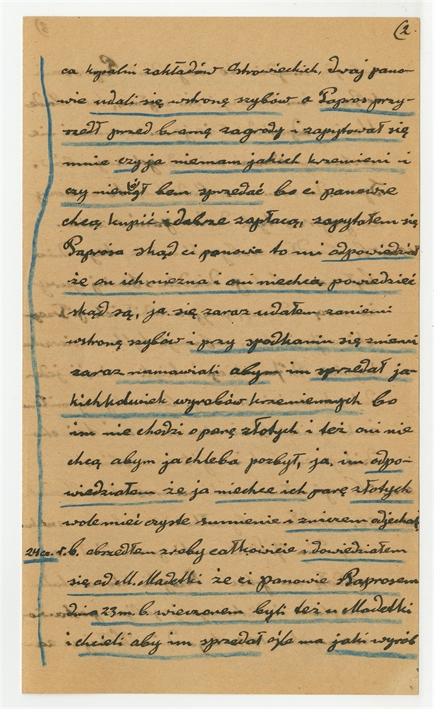 2.
ca kopalń zakładów Ostrowieckich, dwaj pano-
wie udali się wstronę szybów a Papros przy-
szedł przed bramę zagrody i zapytował się
mnie czy ja niemam jakich krzemieni i
czy niemógł bem sprzedać bo ci panowie
chcą kupić i dobrze zapłacą, zapytałem się
Paprosa skąd ci panowie to mi odpowiedział
że on ich niezna i oni niechcą powiedzieć
skąd są, ja się zaraz udałem zaniemi
wstronę szybów i przy spotkaniu się zniemi
zaraz namawiali abym im sprzedał ja-
kichkolwiek wyrobów krzemiennych bo
im nie chodzi o parę złotych i też oni nie
chcą abym ja chleba pozbył, ja im odpo-
wiedziałem że ja niechce ich parę złotych
wole mieć czyste sumienie i zniczem odjechali
24 r.b. obszedłem szyby całkowicie i dowiedziałem
się od M. Madetki że ci panowie Paprosem
dnia 23 m.b. wieczorem byli też u Madetki
i chcieli aby im sprzedał o ile ma jaki wyrób